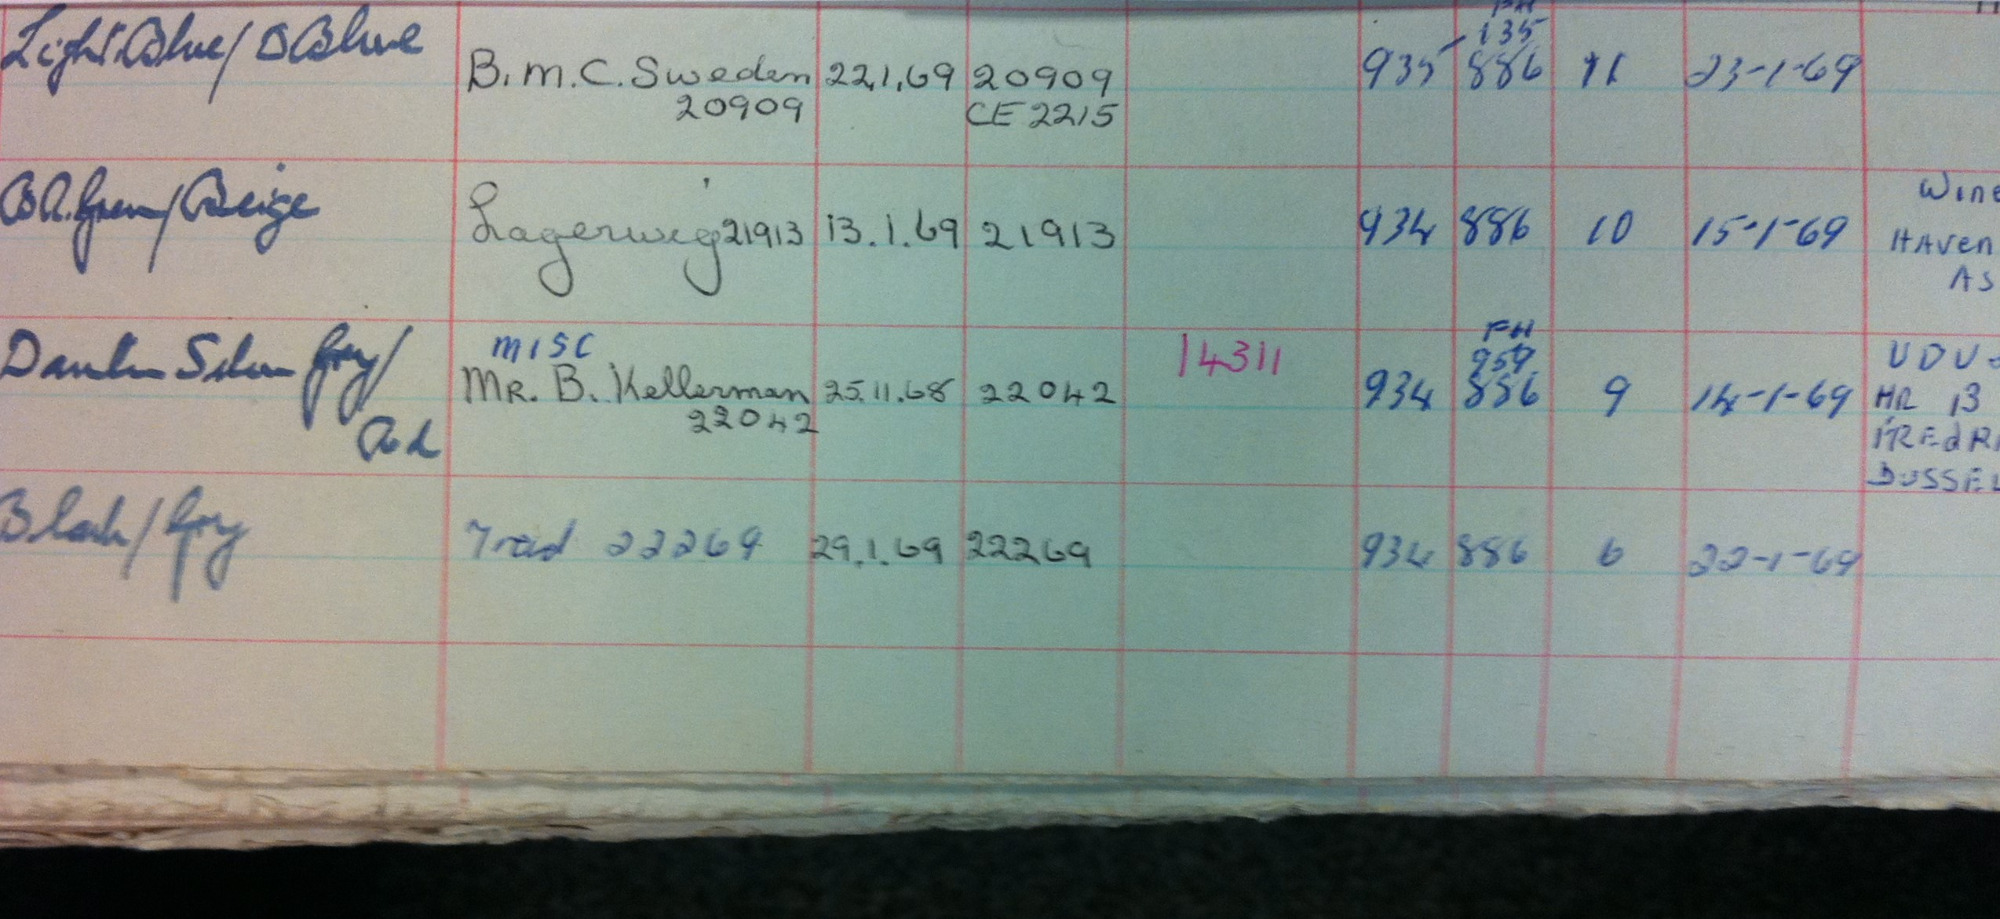 Light Blue/ D Blue
B.M.C. Sweden 22.1.69 20909 935 135 886 11 23-1-69
20909 CE 2215
B.R. Green/Beige
Lagerweig 21913 13.1.69 21913 934 886 10 15-1-69
WINE
HAVEN
AS
Silver Grey/
Red
MISC 14311 FH
959
MR. B. Kellerman 25.11.68 22042 934 886 9 14-1-69
22042
UDU
HR 13
FREdRI
DUSSEL
Black/Grey
Trad 22269 29.1.69 22269 934 886 6 22-1-69